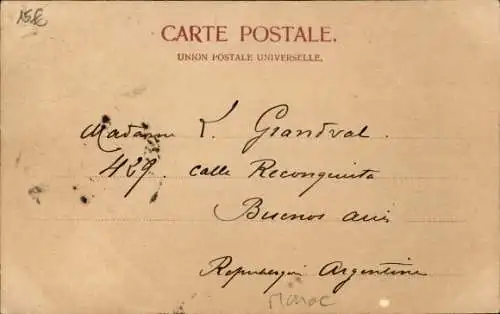 15£
CARTE POSTALE.
UNION POSTALE UNIVERSELLE.
Madame L. Grandval.
429. calle Reconquista
Buenos aires
Republique Argentine
Maroc